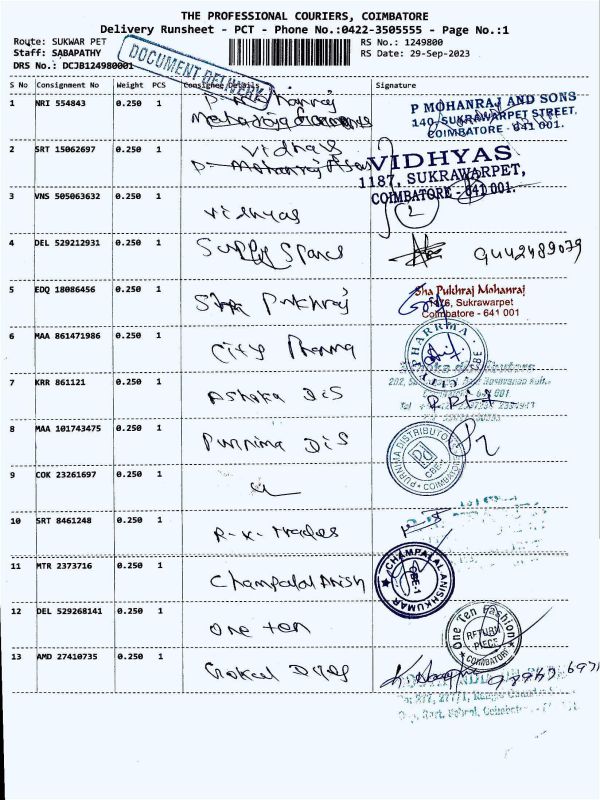 THE PROFESSIONAL COURIERS, COIMBATORE
Delivery Runsheet - PCT - Phone No.:0422-3505555 - Page No.:1
Route: SUKWAR PET
RS No.: 1249800
Staff: SABAPATHY
RS Date: 29-Sep-2023
DRS No.: DCJB124980001
DOCUMENT DELIVERY
S No Consignment No Weight PCS Consignee Details Signature
1 NRI 554843 0.250 1
P MOHANRAJ AND SONS
140, SUKRAWARPET STREET,
COIMBATORE - 641 001.
2 SRT 15062697 0.250 1 Vidhyas
P- Mohanraj
VIDHYAS
1187, SUKRAWARPET,
COIMBATORE - 641 001.
3 VNS 505063632 0.250 1 Vidhyas
4 DEL 529212931 0.250 1 Supply Spares 9442489079
5 EDQ 18086456 0.250 1 Sha Pukhraj
Sha Pukhraj Mohanraj
Sukrawarpet
Coimbatore - 641 001
6 MAA 861471986 0.250 1 City Pharma
CITY PHARRMA CBE
7 KRR 861121 0.250 1 Ashoka Dis
8 MAA 101743475 0.250 1 Purnima Dis
PURNIMA DISTRIBUTORS
Pd
CBE-1
COIMBATORE
9 COK 23261697 0.250 1
10 SRT 8461248 0.250 1 R-K-Trades
11 MTR 2373716 0.250 1 Champalal Anish
CHAMPALAL ANISHKUMAR
CBE-1
12 DEL 529268141 0.250 1 One ten
One Ten Fashion
RETURN
PIECE
COIMBATORE
13 AMD 27410735 0.250 1 Gokul Dyes